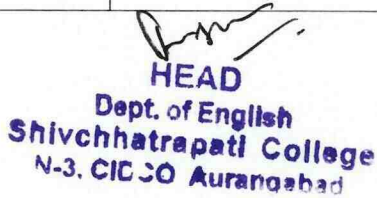 HEAD
Dept. of English
Shivchhatrapati College
N-3, CIDCO Aurangabad